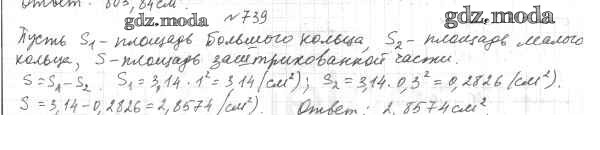 Ответ: 803,84 см
gdz.moda
№739
gdz.moda
Пусть S₁ - площадь большого кольца, S₂ - площадь малого
кольца, S - площадь заштрихованной части.
S = S₁ - S₂. S₁ = 3,14 · 1² = 3,14 (см²); S₂ = 3,14 · 0,3² = 0,2826 (см²).
S = 3,14 - 0,2826 = 2,8574 (см²). Ответ: 2,8574 см².